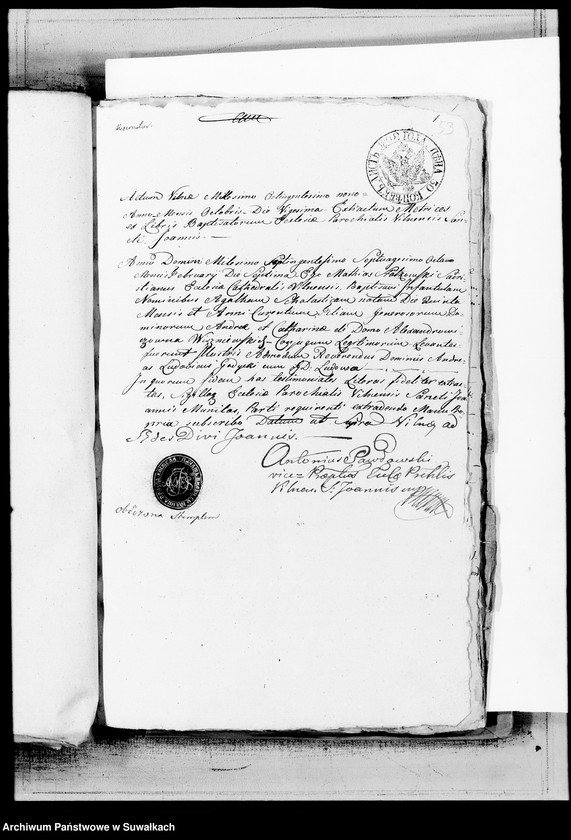 53
Actum Vilnæ Millesimo Octingentesimo nono
Anno Mensis Octobris Die Vigesima Extractum Metrices
ex Libris Baptisatorum Ecclesiæ Parochialis Vilnensis San-
cti Joannis.
Anno Domini Milesimo Septingentesimo Septuagesimo Octavo
Mensis Februarij Die Septima Ego Mathias
Ecclesiæ Cathedralis Vilnensis, Baptisavi Infantulam
Nominibus Agatham Scholastizam natam Die Quinta
Mensis et Anni Currentium, Filiam Generosorum Do-
minorum Andreæ et Catharinæ de Domo
Conjugum Legitimorum Levantes
fuerunt Illustris Admodum Reverendus Dominus Andre-
as Ludovicus cum
In quorum fidem has testimoniales Literas fideliter extrac-
tas, Sigillo Ecclesiæ Parochialis Vilnensis Sancti Jo-
annis Munitas, Parti requirenti extradendo Manu Pro-
pria subscribo Datum ut supra Vilnæ ad
Ædes Divi Joannis.
Antonius Pawłowski
vice
Vilnen. S. Joannis mpp
Archiwum Państwowe w Suwałkach